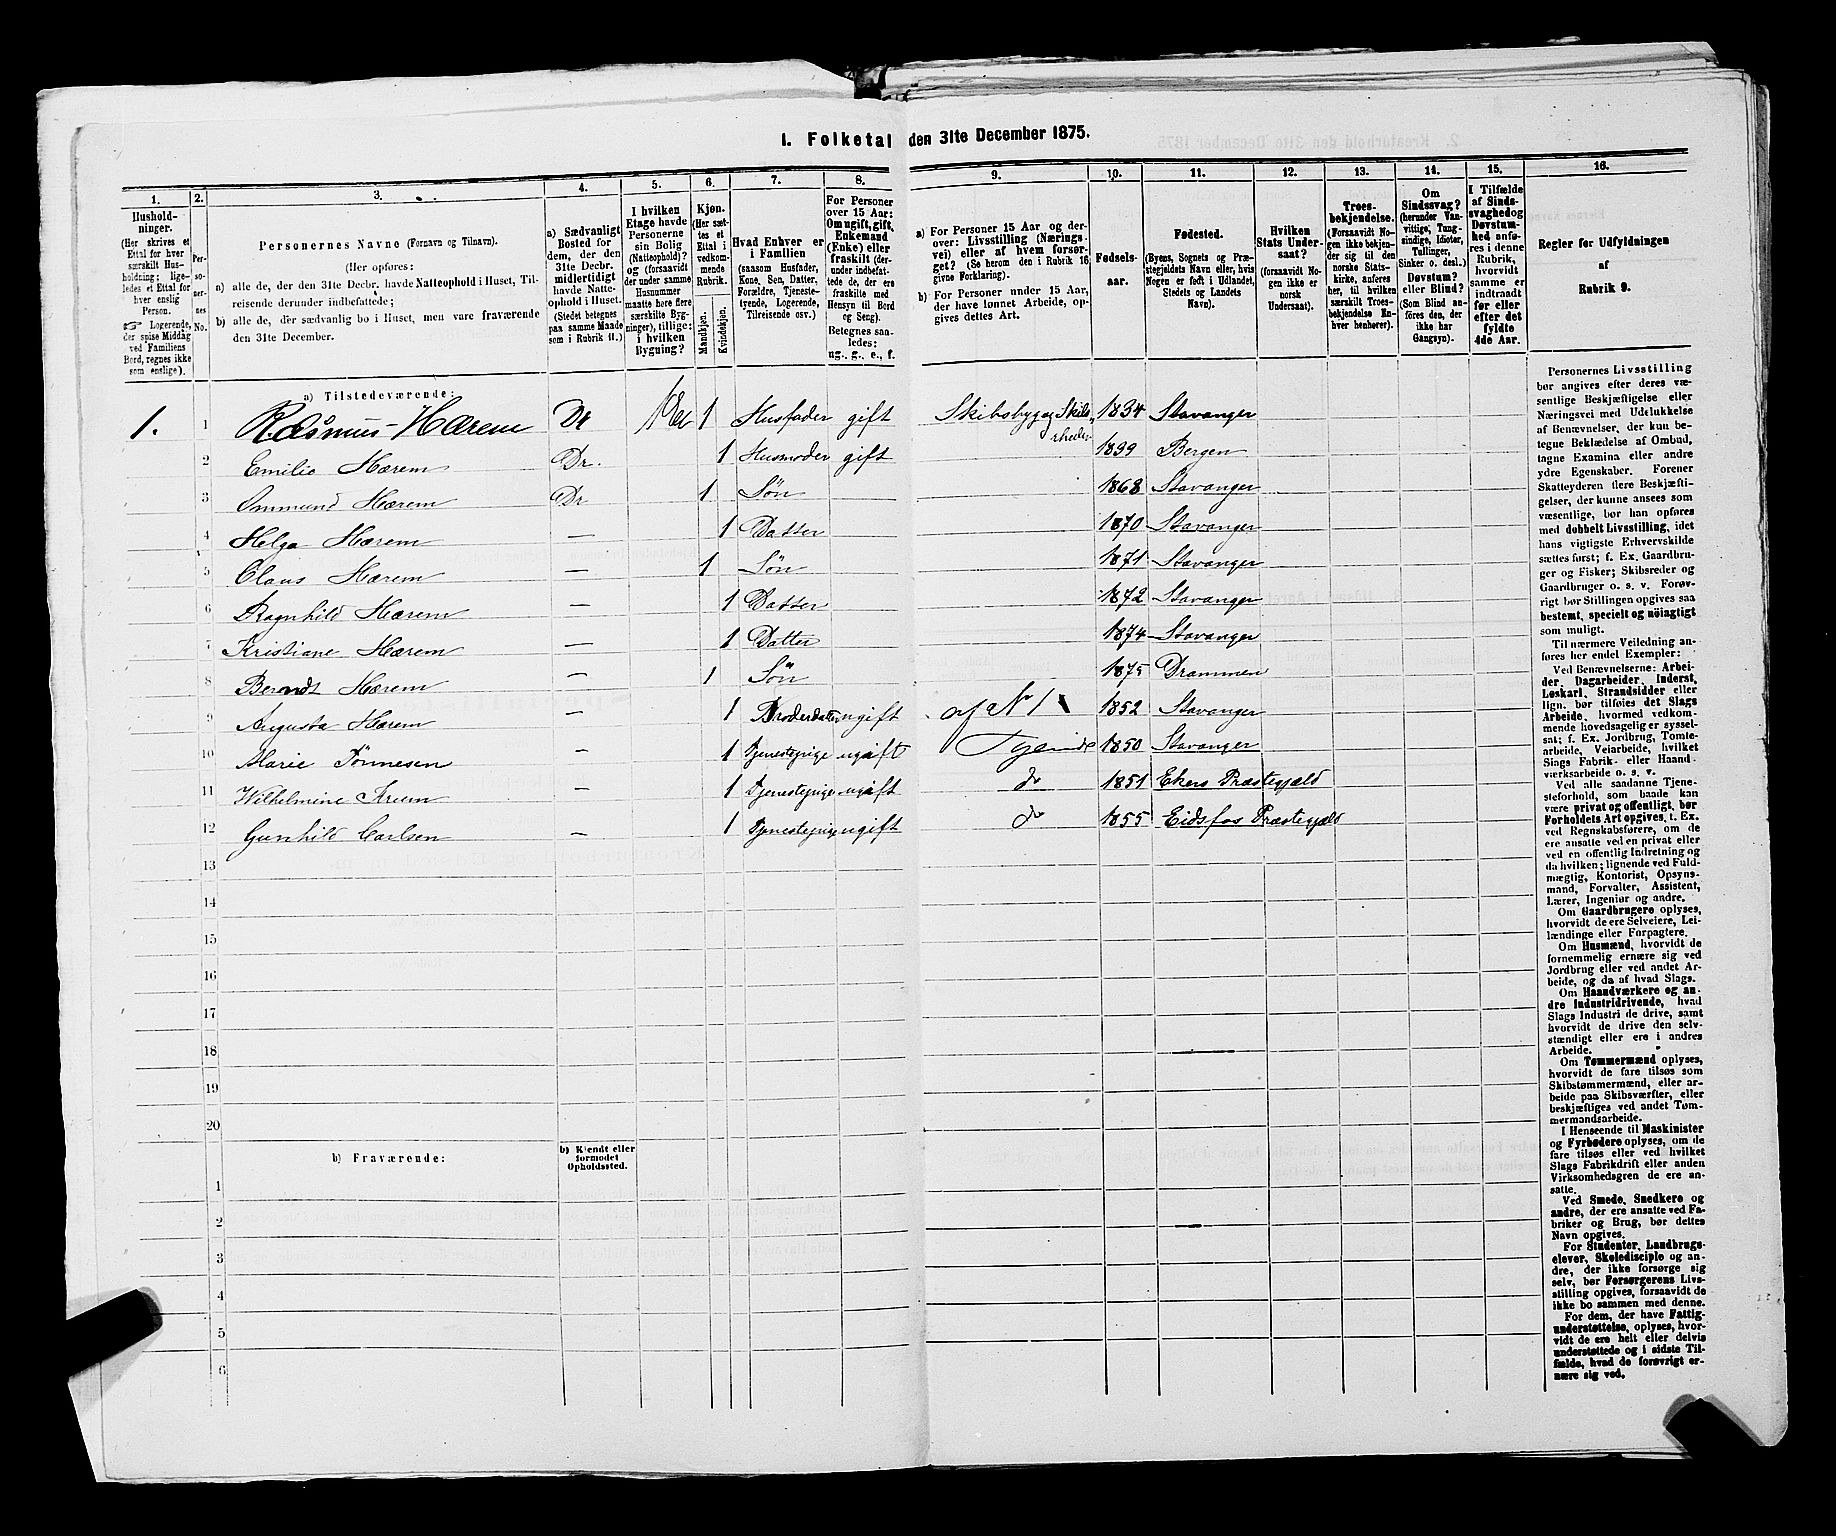 1. Folketal den 31te December 1875.
1. 2. 3. 4. 5. 6. 7. 8. 9. 10. 11. 12. 13. 14. 15. 16.
Hushold-
ninger.
(Her skrives et
Ettal for hver
særskilt Hus-
holdning; lige-
ledes et Ettal for
hver enslig
Person.
☞ Logerende,
der spise Middag
ved Familiens
Bord, regnes ikke
som enslige).
Per-
so-
ner-
nes
No.
Personernes Navne (Fornavn og Tilnavn).
(Her opføres:
a) alle de, der den 31te Decbr. havde Natteophold i Huset, Til-
reisende derunder indbefattede;
b) alle de, der sædvanlig bo i Huset, men vare fraværende
den 31te December.
a) Sædvanligt
Bosted for
dem, der den
31te Decbr.
midlertidigt
havde Natte-
ophold i Huset.
(Stedet betegnes
paa samme Maade
som i Rubrik 11.)
I hvilken
Etage havde
Personerne
sin Bolig
(Natteophold)?
og (forsaavidt
der under samme
Husnummer
maatte høre flere
særskilte Byg-
ninger), tillige:
i hvilken
Bygning?
Kjøn.
(Her sæt-
tes et
Ettal i
vedkom-
mende
Rubrik.
Mandkjøn.
Kvindekjøn.
Hvad Enhver er
i Familien
(saasom Husfader,
Kone, Søn, Datter,
Forældre, Tjeneste-
tyende, Logerende,
Tilreisende osv.)
For Personer
over 15 Aar:
Om ugift, gift,
Enkemand
(Enke) eller
fraskilt (der-
under indbefat-
tede de, der ere
fraskilte med
Hensyn til Bord
og Seng).
Betegnes saa-
ledes:
ug., g., e., f.
a) For Personer 15 Aar og der-
over: Livsstilling (Nærings-
vei) eller af hvem forsør-
get? (Se herom den i Rubrik 16
givne Forklaring).
b) For Personer under 15 Aar,
der have lønnet Arbeide, op-
gives dettes Art.
Fødsels-
aar.
Fødested.
(Byens, Sognets og Præ-
stegjeldets Navn eller, hvis
Nogen er født i Udlandet,
Stedets og Landets
Navn).
Hvilken
Stats Under-
saat?
(forsaavidt No-
gen ikke er
norsk
Undersaat).
Troes-
bekjendelse.
(Forsaavidt No-
gen ikke bekjen-
der sig til den
norske Stats-
kirke, anføres
her, til hvilken
særskilt Troes-
bekjendelse En-
hver henhører).
Om
Sindssvag?
(herunder Van-
vittige, Tung-
sindige, Idioter,
Tullinger,
Sinker o. desl.)
Døvstum?
eller Blind?
(Som Blind an-
føres den, der
ikke har
Gangsyn).
I Tilfælde
af Sinds-
svaghed og
Døvstum-
hed anfø-
res i denne
Rubrik,
hvorvidt
samme er
indtraadt
før eller
efter det
fyldte
4de Aar.
Regler for Udfyldningen
af
Rubrik 9.
a) Tilstedeværende:
1. 1 Rasmus Hærem Dr 1 Husfader gift Skibsbyg og Skibs rheder 1834 Stavanger
2 Emilie Hærem Dr. 1 Husmoder gift 1839 Bergen
3 Ommund Hærem Dr 1 Søn 1868 Stavanger
4 Helga Hærem — 1 Datter 1870 Stavanger
5 Claus Hærem — 1 Søn 1871 Stavanger
6 Ragnhild Hærem — 1 Datter 1872 Stavanger
7 Kristiane Hærem — 1 Datter 1874 Stavanger
8 Berendt Hærem — 1 Søn 1875 Drammen
9 Augusta Hærem — 1 Broderdatter ugift af N 1 1852 Stavanger
10 Marie Tønnesen — 1 Tjenestepige ugift Tyende 1850 Stavanger
11 Wilhelmine — 1 Tjenestepige ugift do 1851 Ekers Præstegjæld
12 Gunhild Carlsen — 1 Tjenestepige ugift do 1855 Eidsfos Præstegjæld
13
14
15
16
17
18
19
20
b) Fraværende:
b) Kjendt eller
formodet
Opholdssted.
1
2
3
4
5
6
Personernes Livsstilling
bør angives efter deres væ-
sentlige Beskjæftigelse eller
Næringsvei med Udelukkelse
af Benævnelser, der kun be-
tegne Beklædelse af Ombud,
tagne Examina eller andre
ydre Egenskaber. Forener
Skatteyderen flere Beskjæfti-
gelser, der kunne ansees som
væsentlige, bør han opføres
med dobbelt Livsstilling, idet
hans vigtigste Erhvervskilde
sættes først; f. Ex. Gaardbru-
ger og Fisker; Skibsreder og
Gaardbruger o. s. v. Forøv-
rigt bør Stillingen opgives saa
bestemt, specielt og nöiagtigt
som muligt.
Til nærmere Veiledning an-
føres her endel Exempler:
Ved Benævnelserne: Arbei-
der, Dagarbeider, Inderst,
Løskarl, Strandsidder eller
lign. bør tilføies det Slags
Arbeide, hvormed vedkom-
mende hovedsagelig er syssel-
sat; f. Ex. Jordbrug, Tomte-
arbeide, Veiarbeide, hvilket
Slags Fabrik- eller Haand-
værksarbeide o. s. v.
Ved alle saadanne Tjene-
steforhold, som baade kan
være privat og offentligt, bør
Forholdets Art opgives, t. Ex.
ved Regnskabsførere, om de
ere ansatte ved en privat eller
ved en offentlig Indretning og
da hvilken; lignende ved Fuld-
mægtig, Kontorist, Opsyns-
mand, Forvalter, Assistent,
Lærer, Ingeniør og andre.
Om Gaardbrugere oplyses,
hvorvidt de ere Selveiere, Lei-
lændinge eller Forpagtere.
Om Husmænd, hvorvidt de
fornemmelig ernære sig ved
Jordbrug eller ved andet Ar-
beide, og da af hvad Slags.
Om Haandværkere og an-
dre Industridrivende, hvad
Slags Industri de drive, samt
hvorvidt de drive den selv-
stændigt eller ere i andres
Arbeide.
Om Tømmermænd oplyses,
hvorvidt de fare tilsøs som
Skibstømmermænd, eller ar-
beide paa Skibsværfter, eller
beskjæftiges ved andet Tøm-
mermandsarbeide.
I Henseende til Maskinister
og Fyrbødere oplyses, om de
fare tilsøs eller ved hvilket
Slags Fabrikdrift eller anden
Virksomhedsgren de ere an-
satte.
Ved Smede, Snedkere og
andre, der ere ansatte ved Fa-
briker og Brug, bør dettes
Navn opgives.
For Studenter, Landbrugs-
elever, Skoledisciple og an-
dre, der ikke forsørge sig
selv, bør Forsørgerens Livs-
stilling opgives, forsaavidt de
ikke bo sammen med denne.
For dem, der have Fattig-
understøttelse, oplyses, hvor-
vidt de ere helt eller delvis
understøttede og i sidste Til-
fælde, hvad de forøvrigt er-
nære sig ved.